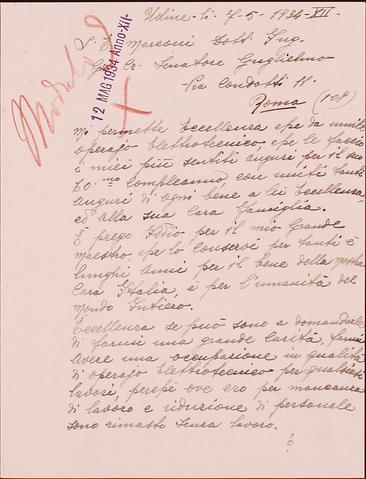 Udine - li - 7-5-1934-XII-
12 MAG 1934 Anno-XII-
S. E. Marconi Dott. Ing.
Gr. Co. Senatore Guglielmo
Via Condotti 11.
Roma (108)
Mi permette Eccellenza epe da umile
operajo Elettrotecnico, epe le faccio
i miei più sentiti auguri per il suo
60.mo compleanno con uniti tanti
auguri di ogni bene a lui Eccellenza
ed alla sua cara Famiglia.
E prego Iddio per il mio grande
maestro, pe lo conservi per tanti è
lunghi anni per il bene della nostra
cara Italia, è per l'umanità del
mondo Intiéro.
Eccellenza se può sono a domandarle
di farmi una grande carità, farmi
avere una occupazione in qualità
di operajo Elettrotecnico per qualsiasi
lavori, perpè ove ero per mancanza
di lavoro e riduzione di personale
sono rimasto senza lavoro.